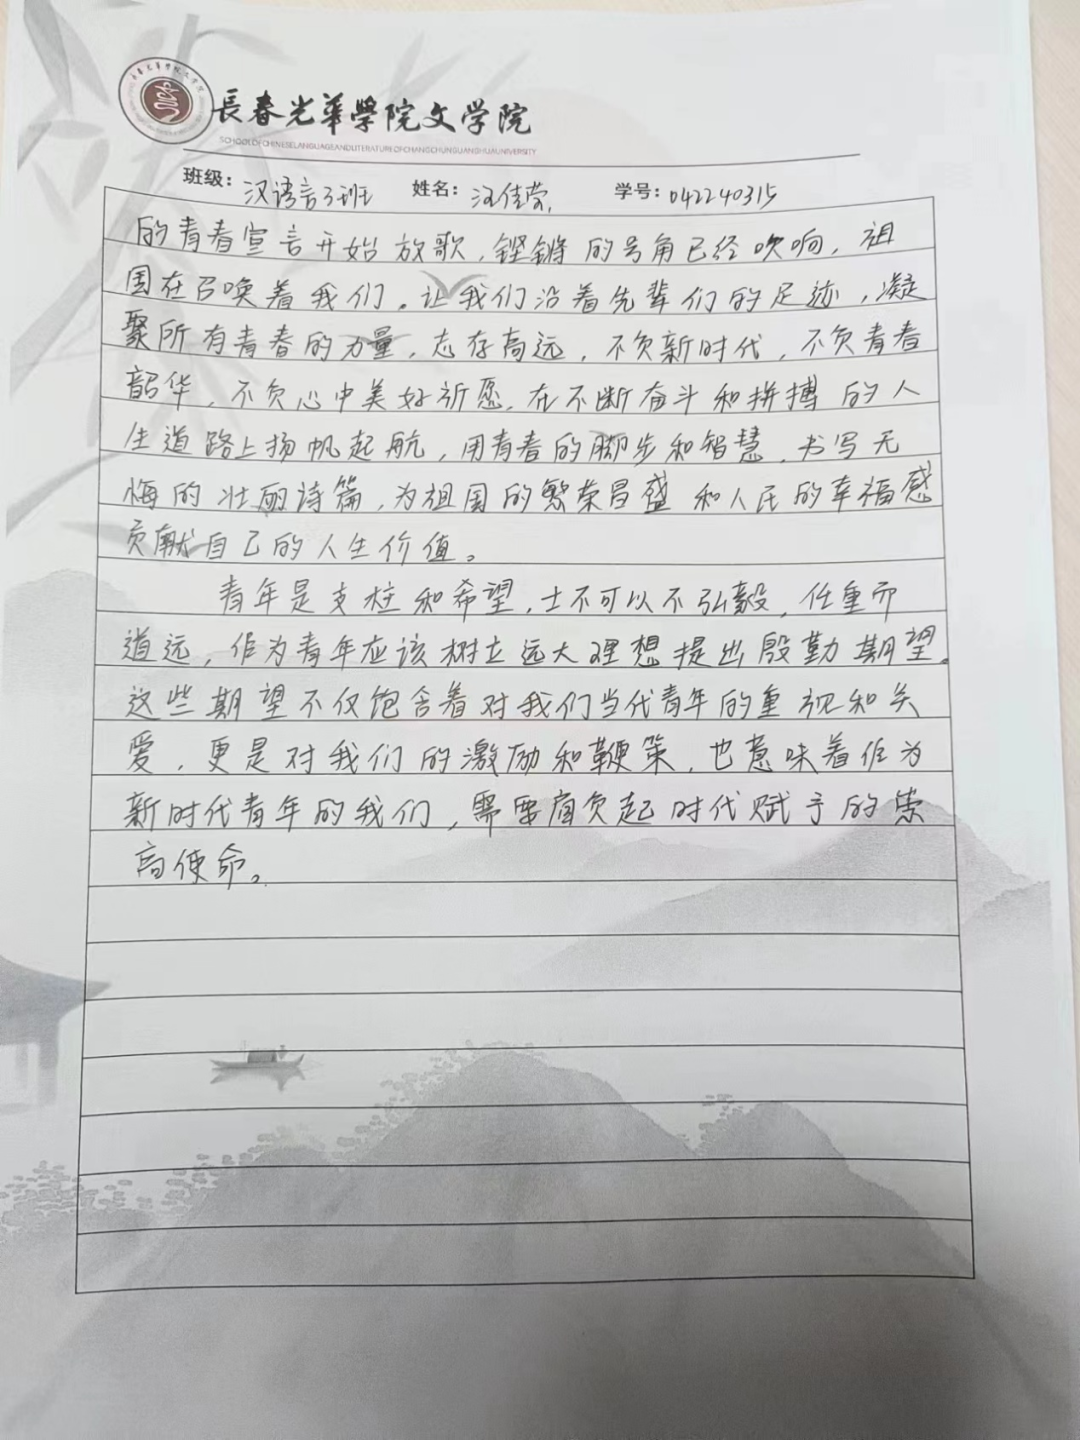 長春光華學院文学院
SCHOOL OF CHINESE LANGUAGE AND LITERATURE OF CHANGCHUN GUANGHUA UNIVERSITY
班级：汉语言3班 姓名：汪佳荣 学号：042240315
的青春宣言开始放歌，铿锵的号角已经吹响，祖
国在召唤着我们。让我们沿着先辈们的足迹，凝
聚所有青春的力量，志存高远，不负新时代，不负青春
韶华，不负心中美好祈愿，在不断奋斗和拼搏的人
生道路上扬帆起航，用青春的脚步和智慧，书写无
悔的壮丽诗篇，为祖国的繁荣昌盛和人民的幸福感
贡献自己的人生价值。
青年是支柱和希望，士不可以不弘毅，任重而
道远，作为青年应该树立远大理想提出殷勤期望。
这些期望不仅饱含着对我们当代青年的重视和关
爱，更是对我们的激励和鞭策，也意味着作为
新时代青年的我们，需要肩负起时代赋予的崇
高使命。